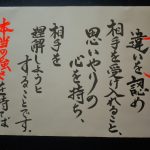 違いを認め
相手を受け入れること、
思いやりの
心を持ち、
相手を
理解しようと
することです。
本当の強さを持てば